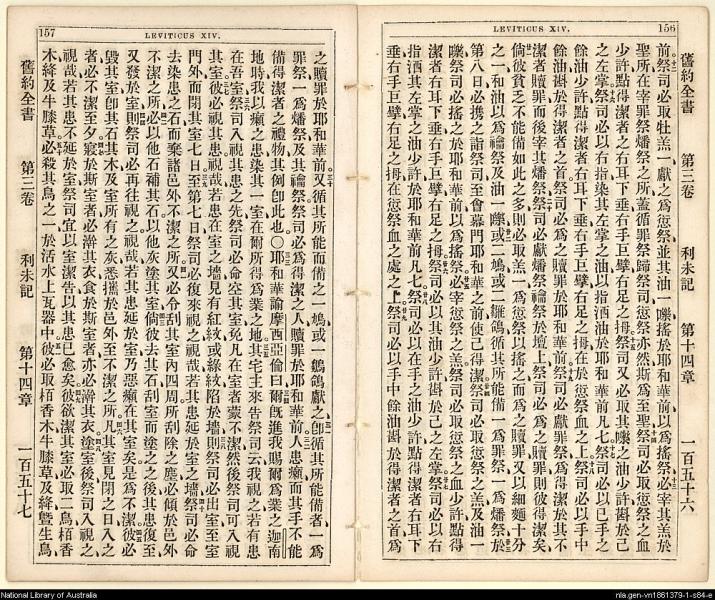 156
LEVITICUS XIV.
前祭司必取牡羔一獻之爲愆祭並其油一搖於耶和華前以爲搖祭必宰其羔於
聖所在宰罪祭燔祭之所蓋循罪祭歸祭司愆祭亦然斯爲至聖祭司必取愆祭之血
少許點得潔者之右耳下垂右手巨擘右足之拇祭司又必取其之油少許斟於己
之左掌祭司必以右指染其左掌之油以指洒油於耶和華前凡七祭司必以己手之
餘油少許點得潔者右耳下垂右手巨擘右足之拇在於愆祭血之上祭司必以手中
餘油斟於得潔者之首祭司必爲之贖罪於耶和華前祭司必獻罪祭爲得潔於其不
潔者贖罪而後宰其燔祭祭司必獻燔祭禴祭於壇上祭司必爲之贖罪則彼得潔矣
倘彼貧乏不能備如此之多則必取羔一爲愆祭以搖之而爲之贖罪又以細麵十分
之一和油以爲禴祭及油一或二鳲或二鶵鴿循其所能備一爲罪祭一爲燔祭於
第八日必攜之詣祭司至會幕門耶和華之前使己得潔祭司必取愆祭之羔及油一
祭司必搖之於耶和華前以爲搖祭必宰愆祭之羔祭司必取愆祭之血少許點得
潔者右耳下垂右手巨擘右足之拇祭司必以其油少許斟於己之左掌祭司必以右
指洒其左掌之油少許於耶和華前凡七祭司必以在手之油少許點得潔者右耳下
垂右手巨擘右足之拇在愆祭血之處之上祭司必以手中餘油斟於得潔者之首爲
舊約全書 第三卷 利未記 第十四章 一百五十六
157
LEVITICUS XIV.
之贖罪於耶和華前又循其所能而備之一鳲或一鶵鴿獻之卽循其所能備者一爲
罪祭一爲燔祭及其禴祭祭司必爲得潔之人贖罪於耶和華前人患癩而其手不能
備得潔者之禮物其例卽此也〇耶和華諭摩西亞倫曰爾旣進我賜爾爲業之迦南
地時我以癩之患染其一室在爾所得爲業之地其宅主來告祭司云我視之若有患
在吾室祭司入視其患之先祭司必命空其室免凡在室者蒙不潔然後祭司可入視
其室彼必視其患視哉若患在室之墻見有紅紋或綠紋陷於墻則祭司必出室至室
門外而閉其室七日至第七日祭司必復來視之視哉若其患延於室之墻祭司必命
去染患之石而棄諸邑外不潔之所又必令刮其室內四周所刮除之塵必傾於邑外
不潔之所必以他石補其石以他灰塗其室倘彼去其石刮室而塗之之後其患復至
又發於室則祭司必再往視之視哉若其患延於室乃惡癩在其室矣是爲不潔彼必
毀其室卽其石其木及室所有之灰悉攜於邑外至不潔之所凡其室見閉之日入之
者必不潔至夕寢於斯室者必澣其衣食於斯室者亦必澣其衣塗室後祭司入視之
視哉若其患不延於室祭司宜以室潔告以其患已愈矣彼欲潔其室必取二鳥栢香
木絳及牛膝草必殺其鳥之一於活水上瓦器中彼必取栢香木牛膝草及絳曁生鳥
舊約全書 第三卷 利未記 第十四章 一百五十七
National Library of Australia
nla.gen-vn1861379-1-s84-e